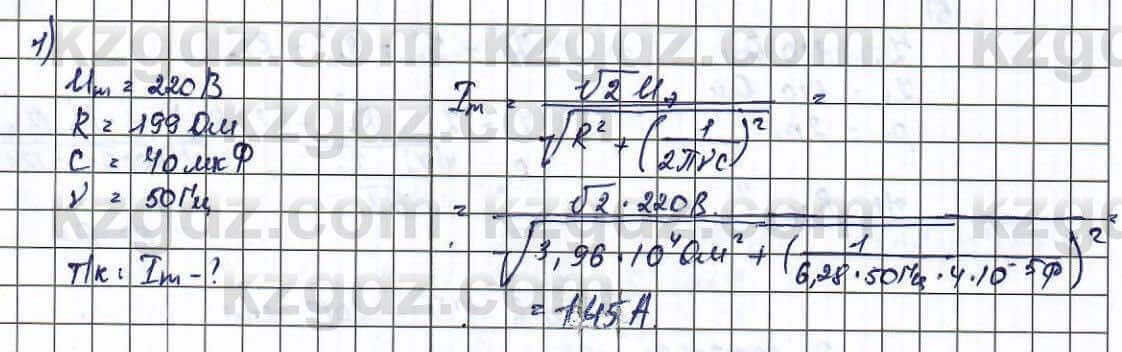 1)
Uₘ = 220 В
R = 199 Ом
C = 40 мкФ
ν = 50 Гц
Т/к: Iₘ - ?
Iₘ = √2 Uэ / √(R² + (1 / 2πνC)²) =
= √2 · 220 В / √(3,96 · 10⁴ Ом² + (1 / 6,28 · 50 Гц · 4 · 10⁻⁵ Ф)²) =
= 1,45 А.
kzgdz.com kzgdz.com kzgdz
kzgdz.com kzgdz.com
kzgdz.com kzgdz.com kzgdz
kzgdz.com kzgdz.com